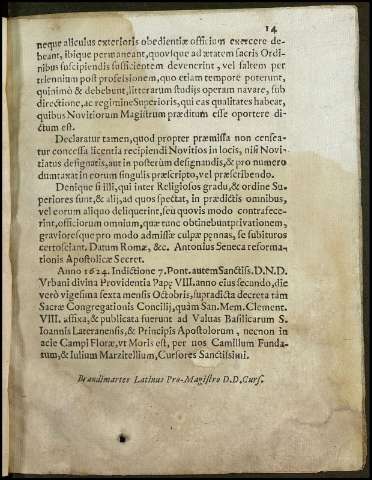 14
neque alicuius exterioris obedientiæ officium exercere de-
beant, ibique permaneant, quovsque ad ætatem sacris Ordi-
nibus suscipiendis sufficientem devenerint, vel saltem per
triennium post professionem, quo etiam tempore poterunt,
quinimò & debebunt, litterarum studijs operam navare, sub
directione, ac regimine Superioris, qui eas qualitates habeat,
quibus Novitiorum Magistrum præditum esse oportere di-
ctum est.
Declaratur tamen, quod propter præmissa non censea-
tur concessa licentia recipiendi Novitios in locis, nisi Novi-
tiatus designatis, aut in posterùm designandis, & pro numero
duntaxat in eorum singulis præscripto, vel præscribendo.
Denique si illi, qui inter Religiosos gradu, & ordine Su-
periores sunt, & alij, ad quos spectat, in prædictis omnibus,
vel eorum aliquo deliquerint, seu quovis modo contrafece-
rint, officiorum omnium, quæ tunc obtinebunt privationem,
graviores que pro modo admissæ culpæ pœnas, se subituros
certo sciant. Datum Romæ, &c. Antonius Seneca reforma-
tionis Apostolicæ Secret.
Anno 1624. Indictione 7. Pont. autem Sanctiss. D. N. D.
Vrbani divina Providentia Papę VIII. anno eius secundo, die
verò vigesima sexta mensis Octobris, supradicta decreta tàm
Sacræ Congregationis Concilij, quàm San. Mem. Clement.
VIII. affixa, & publicata fuerunt ad Valuas Basilicarum S.
Ioannis Lateranensis, & Principis Apostolorum, necnon in
acie Campi Floræ, vt Moris est, per nos Camillum Funda-
tum, & Iulium Marzitellium, Cursores Sanctissimi.
Brandimartes Latinus Pro-Magistro D. D. Curs.